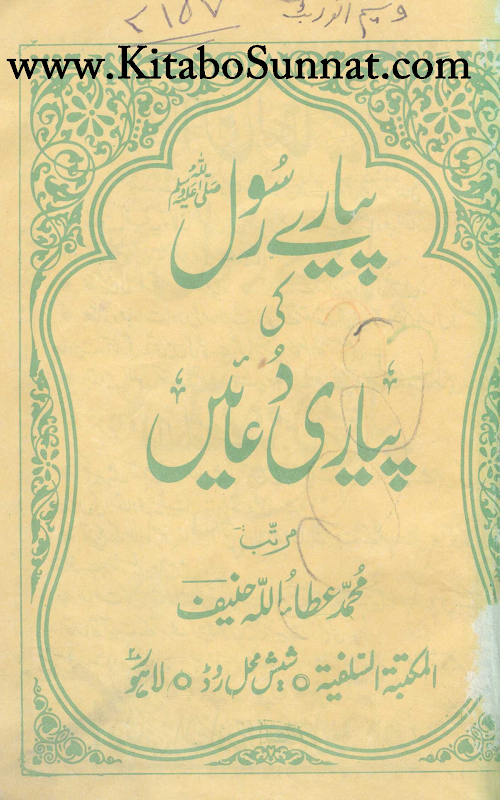 ۲۱۵۷
www.KitaboSunnat.com
پیارے رسول ﷺ
کی
پیاری دُعائیں
مرتّب
محُمدّ عطاءُ اللہ حنیف
المکتبۃ السّلفیۃ ○ شیش محل روڈ ○ لاہور